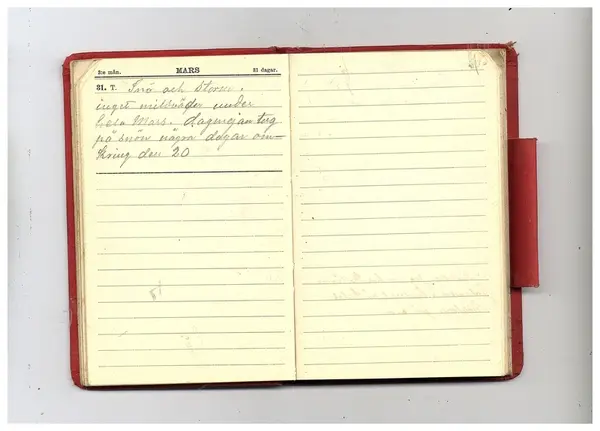 3:e mån. MARS 31 dagar.
31. T. Snö och Storm.
inget mildväder under
hela Mars. dagarna tög
på snön några dagar om-
kring den 20